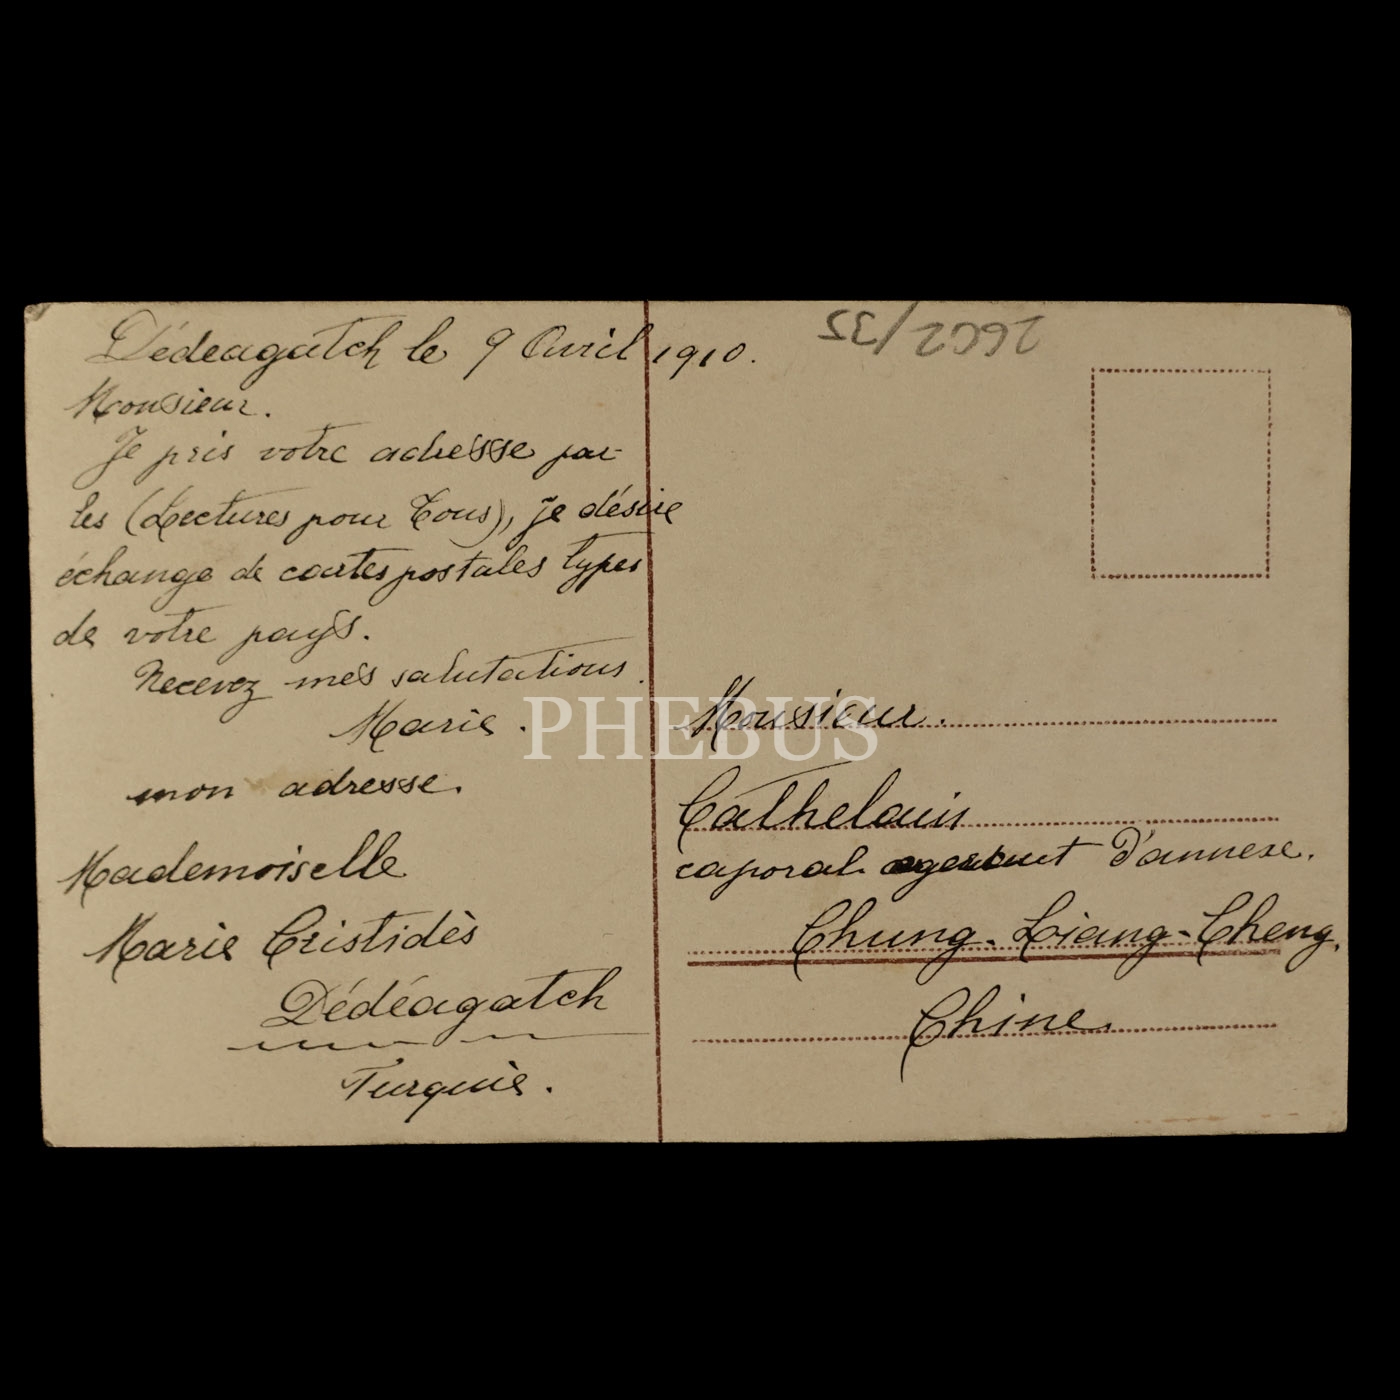 Dédeagatch le 9 Avril 1910.
Monsieur.
Je pris votre adresse par
les (Lectures pour Tous), je désire
échange de cartes postales types
de votre pays.
Recevez mes salutations.
Marie.
mon adresse.
Mademoiselle
Marie Cristidès
Dédéagatch
Turquie.
2662/35
PHEBUS
Monsieur.
Cathelain
caporal d'annexe.
Chung-Liang-Cheng.
Chine.